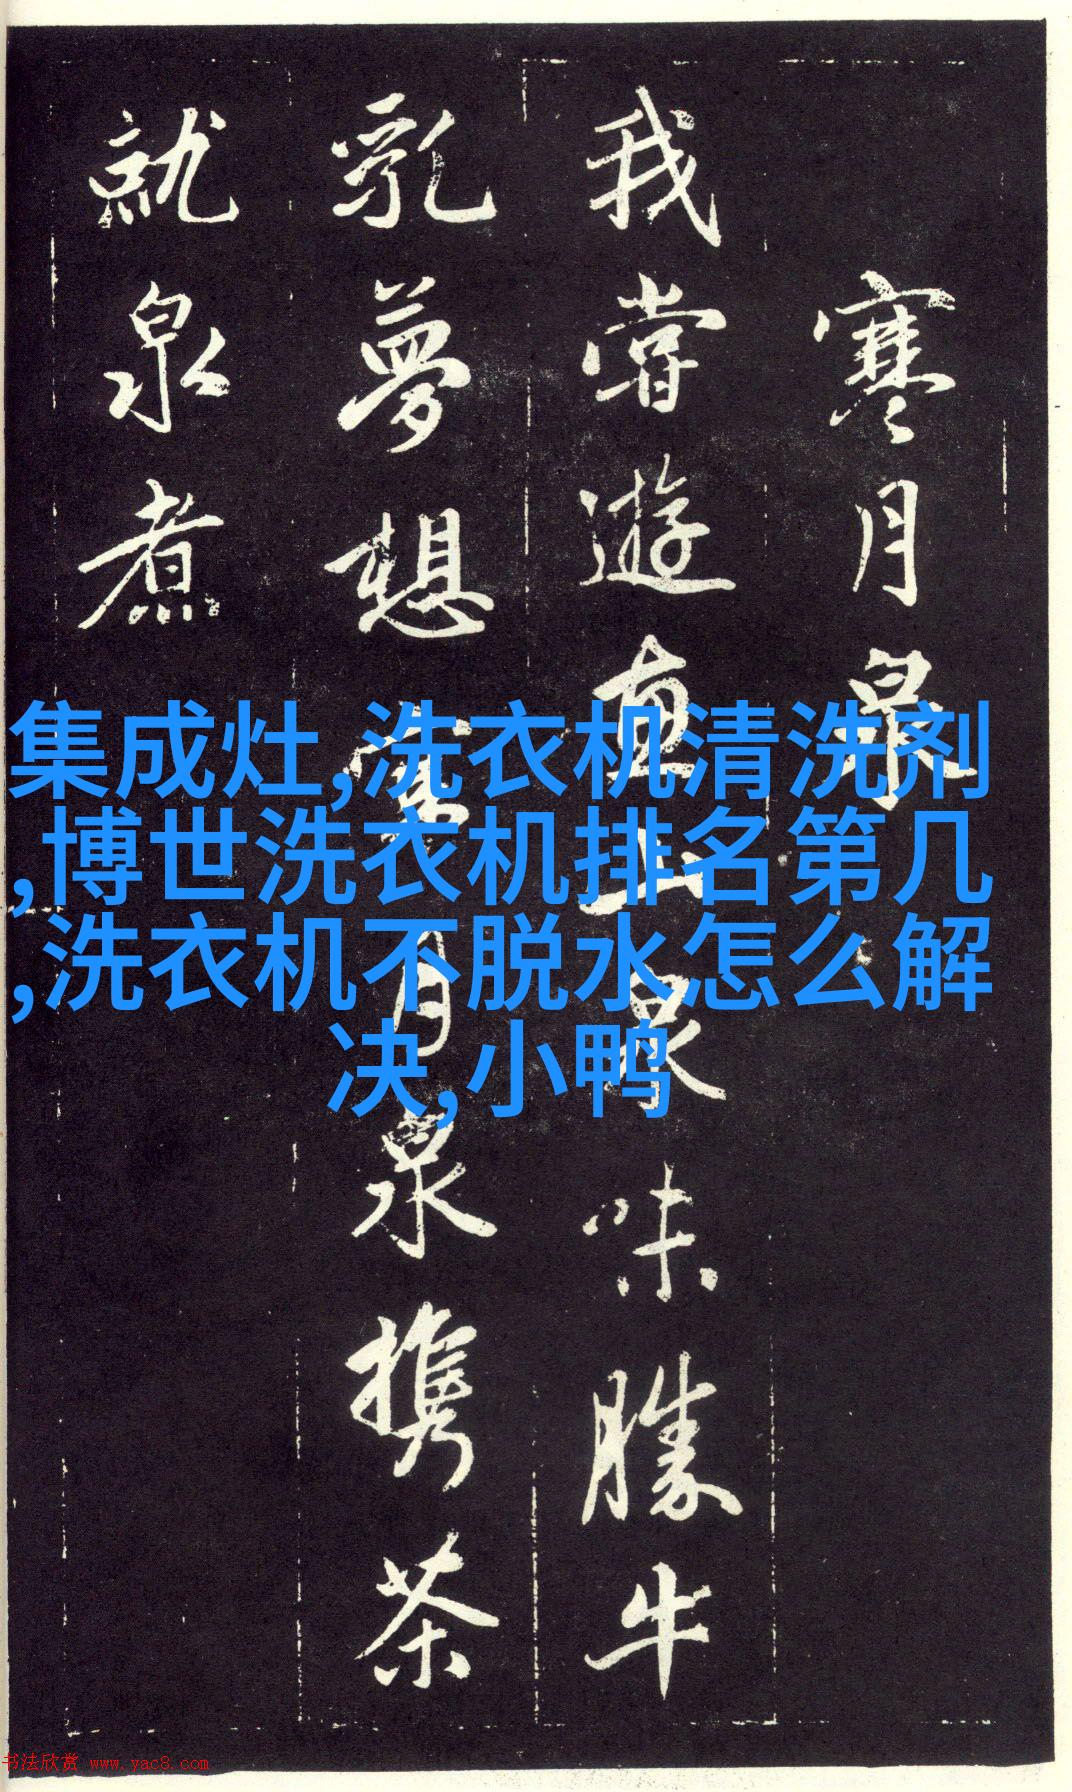 寒月泉
我嘗遊惠山泉味勝牛
乳夢想寒月泉攜茶
就泉煮
集成灶,洗衣机清洗剂
,博世洗衣机排名第几
,洗衣机不脱水怎么解
决,小鸭
书法欣赏 www.yac8.com